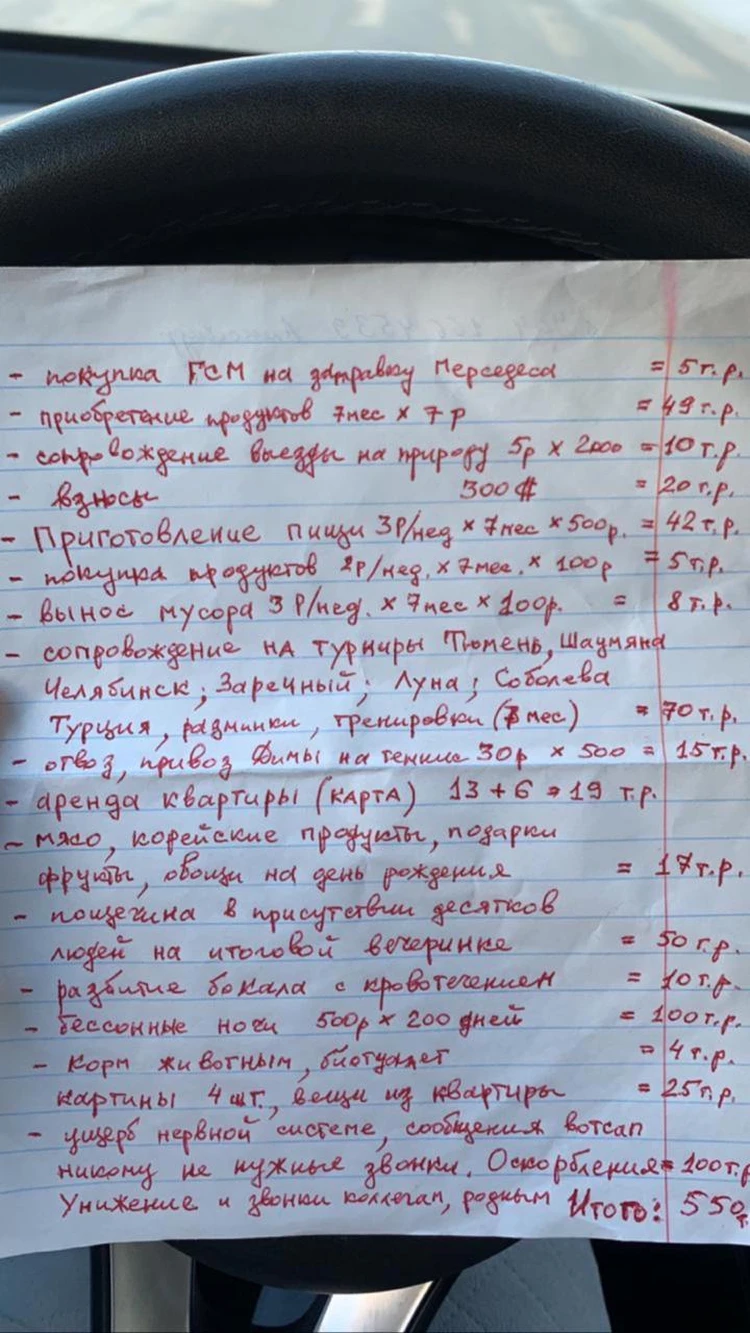 - покупка ГСМ на заправку Мерседеса = 5 т.р.
- приобретение продуктов 7 мес х 7 р = 49 т.р.
- сопровождение выезды на природу 5р х 2000 = 10 т.р.
- взносы 300 = 20 т.р.
- Приготовление пищи 3Р/нед х 7 мес х 500р. = 42 т.р.
- покупка продуктов 2Р/нед. х 7 мес. х 100р = 5 т.р.
- вынос мусора 3 Р/нед. х 7 мес х 100р. = 8 т.р.
- сопровождение на турниры Тюмень, Шаумяна
Челябинск; Заречный; Луна; Соболева
Турция, разминки, тренировки (7 мес) = 70 т.р.
- отвоз, привоз Димы на теннис 30р х 500 = 15 т.р.
- аренда квартиры (КАРТА) 13 + 6 = 19 т.р.
- мясо, корейские продукты, подарки
фрукты, овощи на день рождения = 17 т.р.
- пощечина в присутствии десятков
людей на итоговой вечеринке = 50 т.р.
- разбитие бокала с кровотечением = 10 т.р.
- бессонные ночи 500р х 200 дней = 100 т.р.
- Корм животным, биотуалет = 4 т.р.
картины 4 шт., вещи из квартиры = 25 т.р.
- ущерб нервной системе, сообщения вотсап
никому не нужные звонки. Оскорбления = 100 т.р
Унижение и звонки коллегам, родным Итого: 550 т.